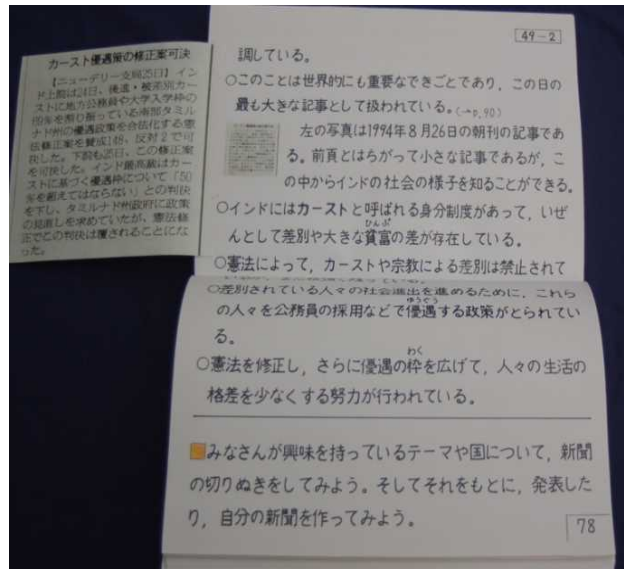 カースト優遇策の修正案可決
【ニューデリー支局25日】イン
ド上院は24日、後進・被差別カー
ストに地方公務員や大学入学枠の
69%を割り振っている南部タミル
ナド州の優遇政策を合法化する憲
法修正案を賛成148、反対2で可
決した。下院も25日、この修正案
を可決した。インド最高裁はカー
ストに基づく優遇枠について「50
%を超えてはならない」との判決
を下し、タミルナド州政府に政策
の見直しを求めていたが、憲法修
正でこの判決は覆されることにな
った。
49-2
調している。
○このことは世界的にも重要なできごとであり，この日の
最も大きな記事として扱われている。(→p.90)
左の写真は1994年8月26日の朝刊の記事であ
る。前頁とはちがって小さな記事であるが，こ
の中からインドの社会の様子を知ることができる。
○インドにはカーストと呼ばれる身分制度があって，いぜ
ひんぷ
んとして差別や大きな貧富の差が存在している。
○憲法によって，カーストや宗教による差別は禁止されて
○差別されている人々の社会進出を進めるために，これら
ゆうぐう
の人々を公務員の採用などで優遇する政策がとられてい
る。
わく
○憲法を修正し，さらに優遇の枠を広げて，人々の生活の
格差を少なくする努力が行われている。
みなさんが興味を持っているテーマや国について，新聞
の切りぬきをしてみよう。そしてそれをもとに，発表した
り，自分の新聞を作ってみよう。
78